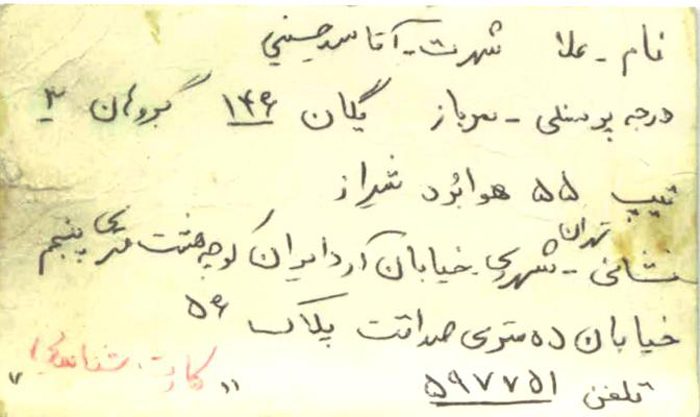 نام - علا شهرت - آقا سید حسینی
درجه پرسنلی - سرباز یگان ۱۴۶ گروهان ۳
تیپ ۵۵ هوابرد شیراز
نشانی - تهران شهرری خیابان آرد ایران کوچه هشت متری پنجم
خیابان ده متری صداقت پلاک ۵۶
تلفن ۵۹۷۷۵۱ " کارت شناسائی "